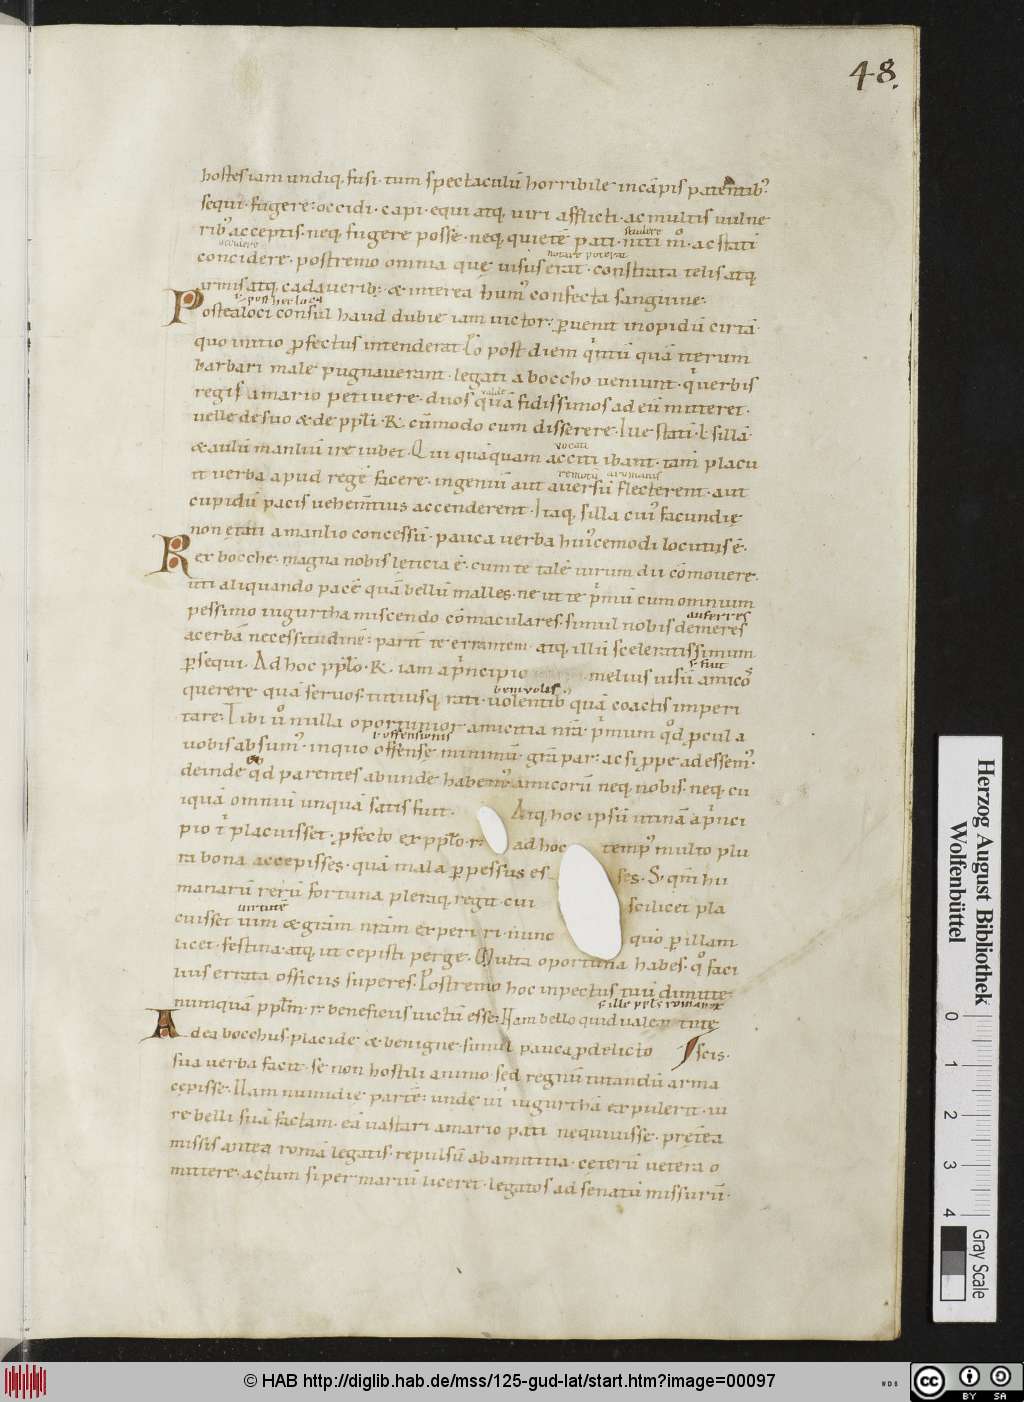 48.
hostes iam undiq; fusi. tum spectaculū horribile in cāpis patentib;
sequi. fugere: occidi. capi. equi atq; viri afflicti. ac multis vulne
rib; acceptis. neq; fugere posse. neq; quietē pati. niti m̊. ac stati
concidere. postremo omnia quę visus erat. constrata telis atq;
armis atq; cadaverib;. & interea hum' confecta sanguine.
s. post hec loca
Postea loci consul haud dubie iam victor. pervenit in opidū cirtā.
quo initio profectus intenderat. Eo post diem quintū quā iterum
barbari male pugnaverant. legati a boccho veniunt. qui verbis
regis a mario petivere. duos quā fidissimos ad eū mitteret.
velle de suo & de ppli .R. cūmodo cum disserere. Ille stati .L. sillā
vocati
& aulū manliū ire iubet. Qui quāquam acciti ibant. tam placu
it verba apud regē facere. ingeniū aut aversū flecterent. aut
cupidū pacis vehemtius accenderent. Itaq; silla cui' facundię
non ętati a manlio concessū. pauca verba hui'cemodi locutus ē.
Rex bocche. magna nobis leticia ē. cum te talē virum dii cōmovere.
uti aliquando pacē quā bellū malles. ne ut te primū cum omnium
auferres
pessimo iugurtha miscendo cōmaculares. simul nobis demeres
acerbā necessitudinē: parit te errantem. atq; illū sceleratissimum
s. fuit
persequi. Ad hoc pplo .R. iam a principio melius visū amicos
benivolis
querere quā servos. tutiusq; rati. volentib; quā coactis imperi
tare. Tibi vo nulla oportunior amicitia nrā. primum qd procul a
l. offensionis
vobis absum'. in quo offensę minimū. grā par. ac si prope adessem'.
deinde qd parentes abunde habem'. amicorū neq; nobis. neq; cu
iquā omniū unquā satis fuit. Atq; hoc ipsū utinā a princi
pio tibi placuisset. profecto ex pplo .r. ad hoc temp' multo plu
ra bona accepisses. quā mala perpessus es ses. S; qm hu
manarū rerū fortuna pleraq; regit. cui scilicet pla
virtutē
cuisset vim & grām nrām experi ri. nunc quo per illam
licet. festina. atq; ut cepisti perge. Multa oportuna habes. quo faci
lius errata officiis superes. Postremo hoc in pectus tuū dimitte.
s. ille ppls romanus
numquā pplm .r. beneficiis victū esse. Nam bello quid valeat tute
scis.
Ad ea bocchus. placide & benigne. simul pauca pro delicto
sua verba facit. se non hostili animo sed regnū tutandū arma
cępisse. Nam numidie partē: unde vi iugurthā expulerit. iu
re belli suā factam. eā vastari a mario pati nequivisse. pręterea
missis antea romā legatis. repulsū ab amititia. cęterū vetera o
mittere. actum si per mariū liceret. legatos ad senatū missurū.
Herzog August Bibliothek
Wolfenbüttel
0 1 2 3 4
Gray Scale
© HAB http://diglib.hab.de/mss/125-gud-lat/start.htm?image=00097
WDB
cc BY SA